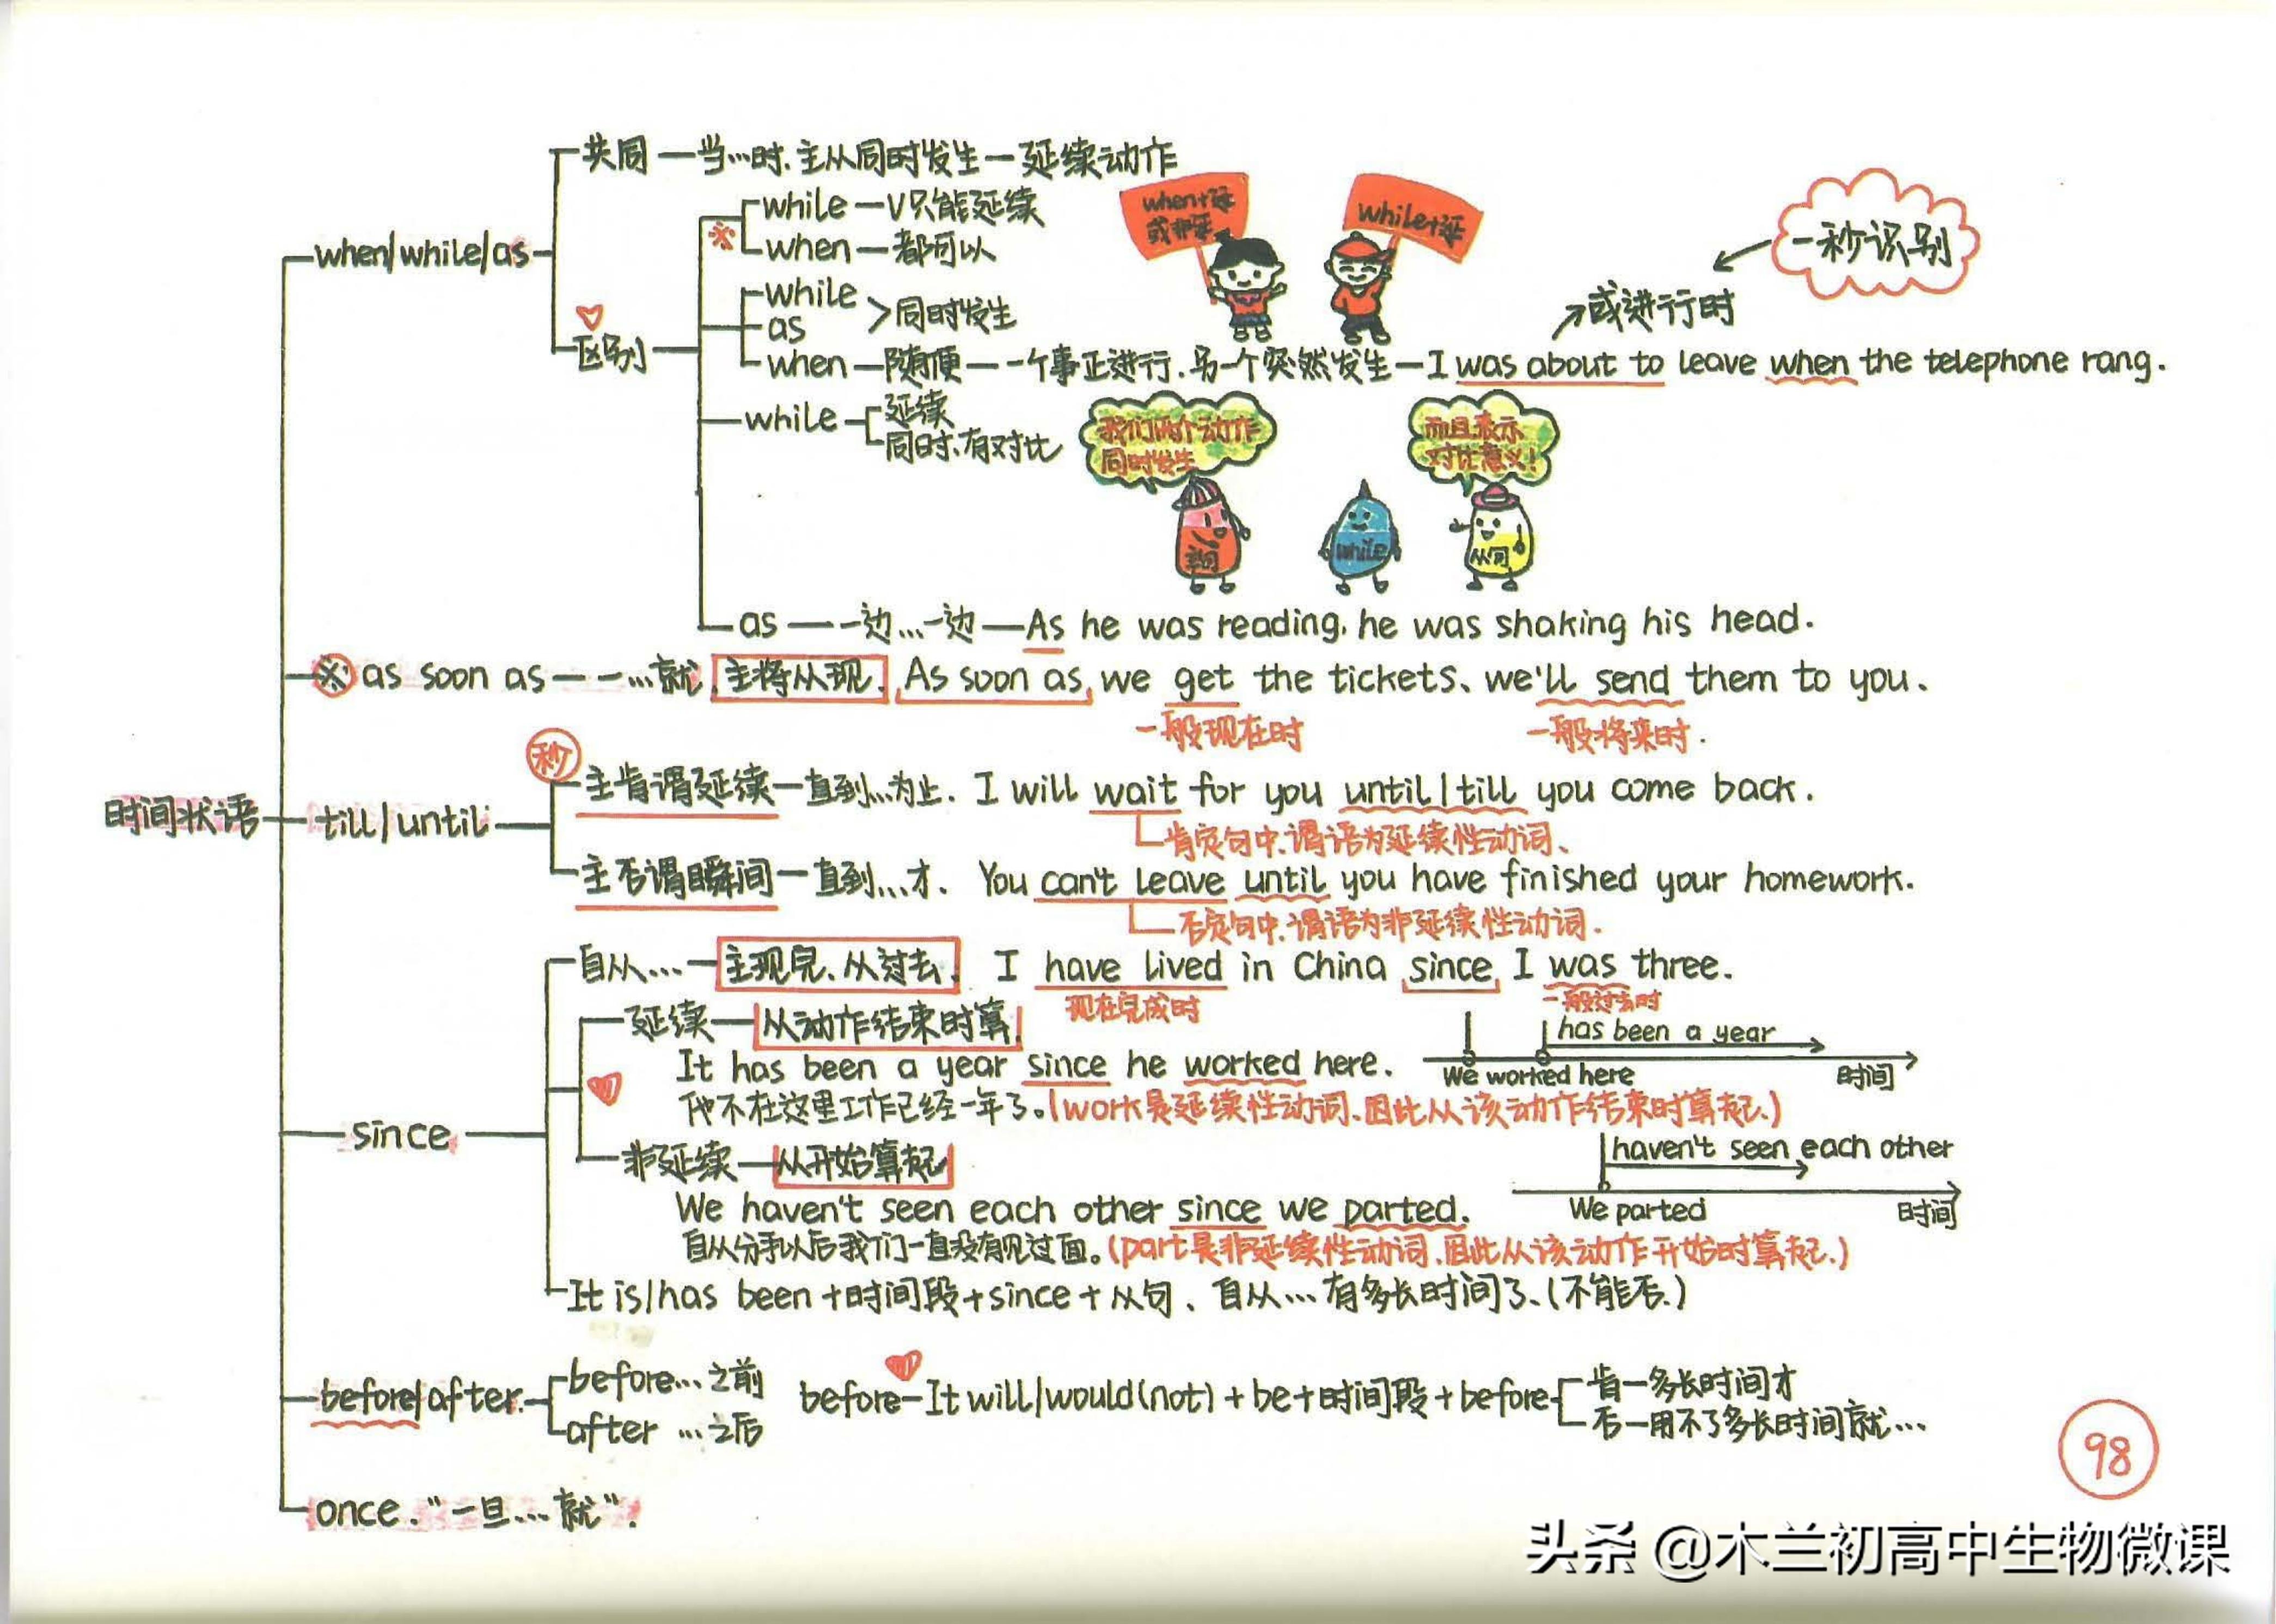 共同—当…时.主从同时发生—延续动作
while—V只能延续
when+延
或非延
while+延
一秒识别
※
when—都可以
when/while/as
while
as
>同时发生
或进行时
区别
when—随便—一个事正进行.另一个突然发生—I was about to leave when the telephone rang.
while
延续
同时、有对比
我们两个动作
同时发生
而且表示
对比意义!
主句
while
从句
as—一边…一边—As he was reading, he was shaking his head.
※ as soon as—一…就 主将从现. As soon as we get the tickets、we'll send them to you.
一般现在时
一般将来时.
秒
主肯谓延续—直到…为止. I will wait for you until/till you come back.
时间状语
till/until
肯定句中.谓语为延续性动词、
主否谓瞬间—直到…才. You can't leave until you have finished your homework.
否定句中.谓语为非延续性动词.
自从…—主现完、从过去. I have lived in China since I was three.
现在完成时
一般过去时
延续—从动作结束时算
has been a year
It has been a year since he worked here.
We worked here
时间
他不在这里工作已经一年了。(work是延续性动词.因此从该动作结束时算起.)
since
非延续—从开始算起
haven't seen each other
We haven't seen each other since we parted.
We parted
时间
自从分手以后我们一直没有见过面。(part是非延续性动词.因此从该动作开始时算起.)
It is/has been+时间段+since+从句、自从…有多长时间了、(不能否.)
before/after.
before…之前
after …之后
before—It will/would(not)+be+时间段+before
肯—多长时间才
否—用不了多长时间就…
once."一旦…就".
98
头条 @木兰初高中生物微课